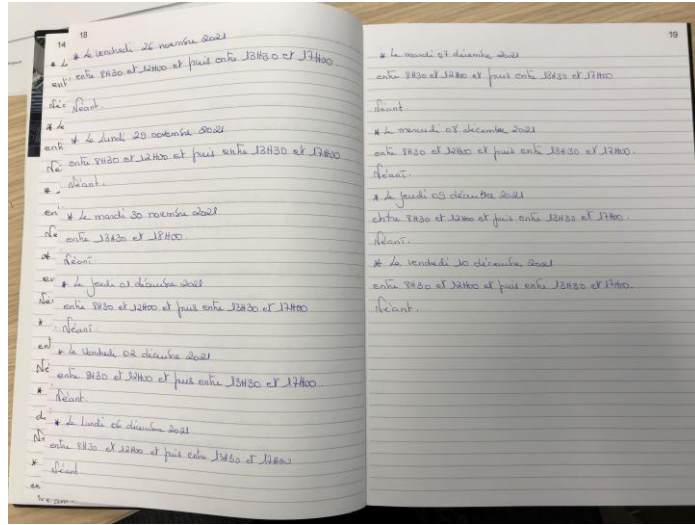 14
18
* Le vendredi 26 novembre 2021
entre 8H30 et 12H00 et puis entre 13H30 et 17H00.
Néant.
* Le Lundi 29 novembre 2021
entre 8H30 et 12H00 et puis entre 13H30 et 17H00.
Néant.
* Le mardi 30 novembre 2021
entre 13H30 et 18H00.
Néant.
* Le jeudi 01 décembre 2021
entre 8H30 et 12H00 et puis entre 13H30 et 17H00
Néant.
* Le Vendredi 02 décembre 2021
entre 8H30 et 12H00 et puis entre 13H30 et 17H00.
Néant.
* Le Lundi 06 décembre 2021
entre 8H30 et 12H00 et puis entre 13H30 et 17H00
Néant
19
* Le mardi 07 décembre 2021
entre 8H30 et 12H00 et puis entre 13H30 et 17H00
Néant.
* Le mercredi 08 décembre 2021
entre 8H30 et 12H00 et puis entre 13H30 et 17H00.
Néant.
* Le jeudi 09 décembre 2021
entre 8H30 et 12H00 et puis entre 13H30 et 17H00.
Néant.
* Le vendredi 10 décembre 2021
entre 8H30 et 12H00 et puis entre 13H30 et 17H00.
Néant.